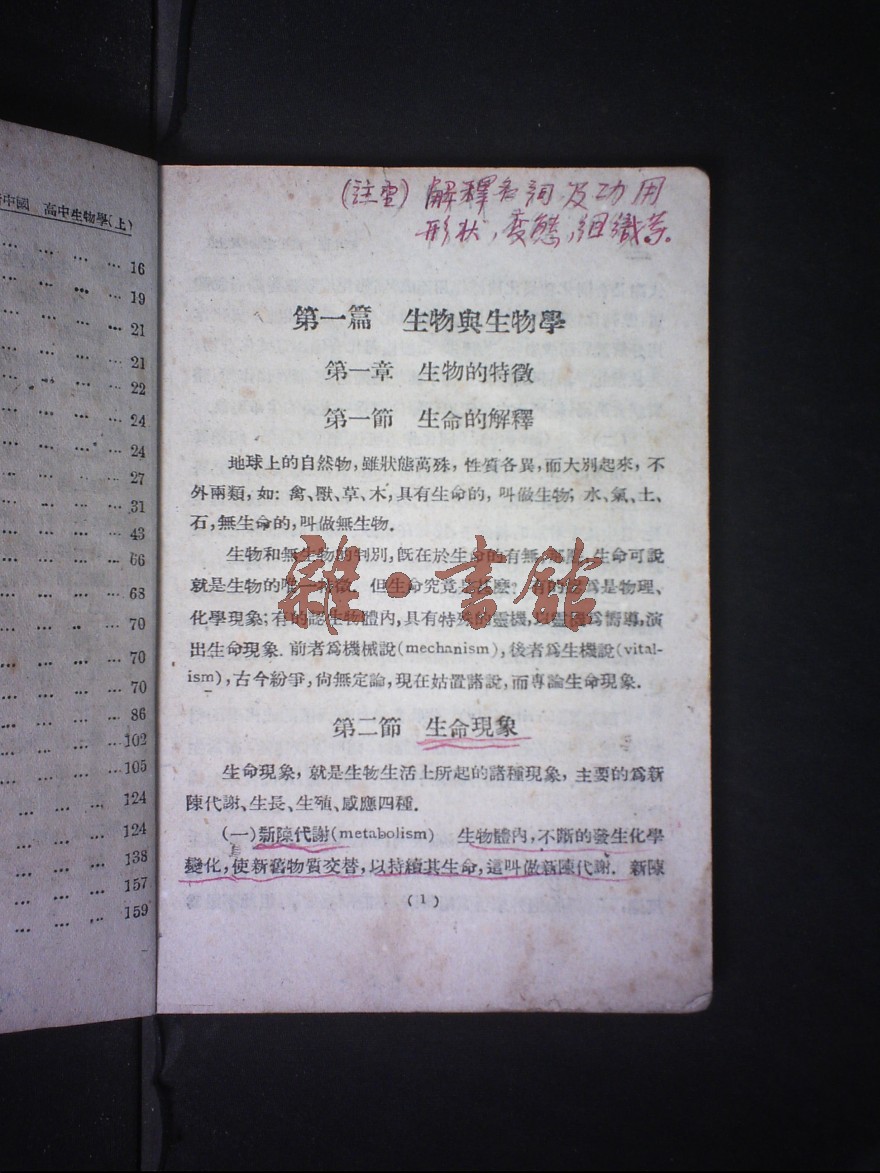 中國 高中生物學(上)
16
19
21
21
22
24
24
27
31
43
66
68
70
70
70
86
102
105
124
124
138
157
159
(註重) 解釋名詞及功用
形狀,变態,組織等.
第一篇 生物與生物學
第一章 生物的特徵
第一節 生命的解釋
地球上的自然物,雖狀態萬殊,性質各異,而大別起來,不
外兩類,如:禽、獸、草、木,具有生命的,叫做生物;水、氣、土、
石,無生命的,叫做無生物.
生物和無生物的判別,旣在於生命的有無 生命可說
就是生物的唯一特徵.但生命究竟是什麽?有的 爲是物理、
化學現象;有的認生物體內,具有特殊的靈機,以靈機爲嚮導,演
出生命現象.前者爲機械說(mechanism),後者爲生機說(vital-
ism),古今紛爭,尙無定論,現在姑置諸說,而專論生命現象.
第二節 生命現象
生命現象,就是生物生活上所起的諸種現象,主要的爲新
陳代謝、生長、生殖、感應四種.
(一)新陳代謝(metabolism) 生物體內,不斷的發生化學
變化,使新舊物質交替,以持續其生命,這叫做新陳代謝.新陳
(1)
雜·書館